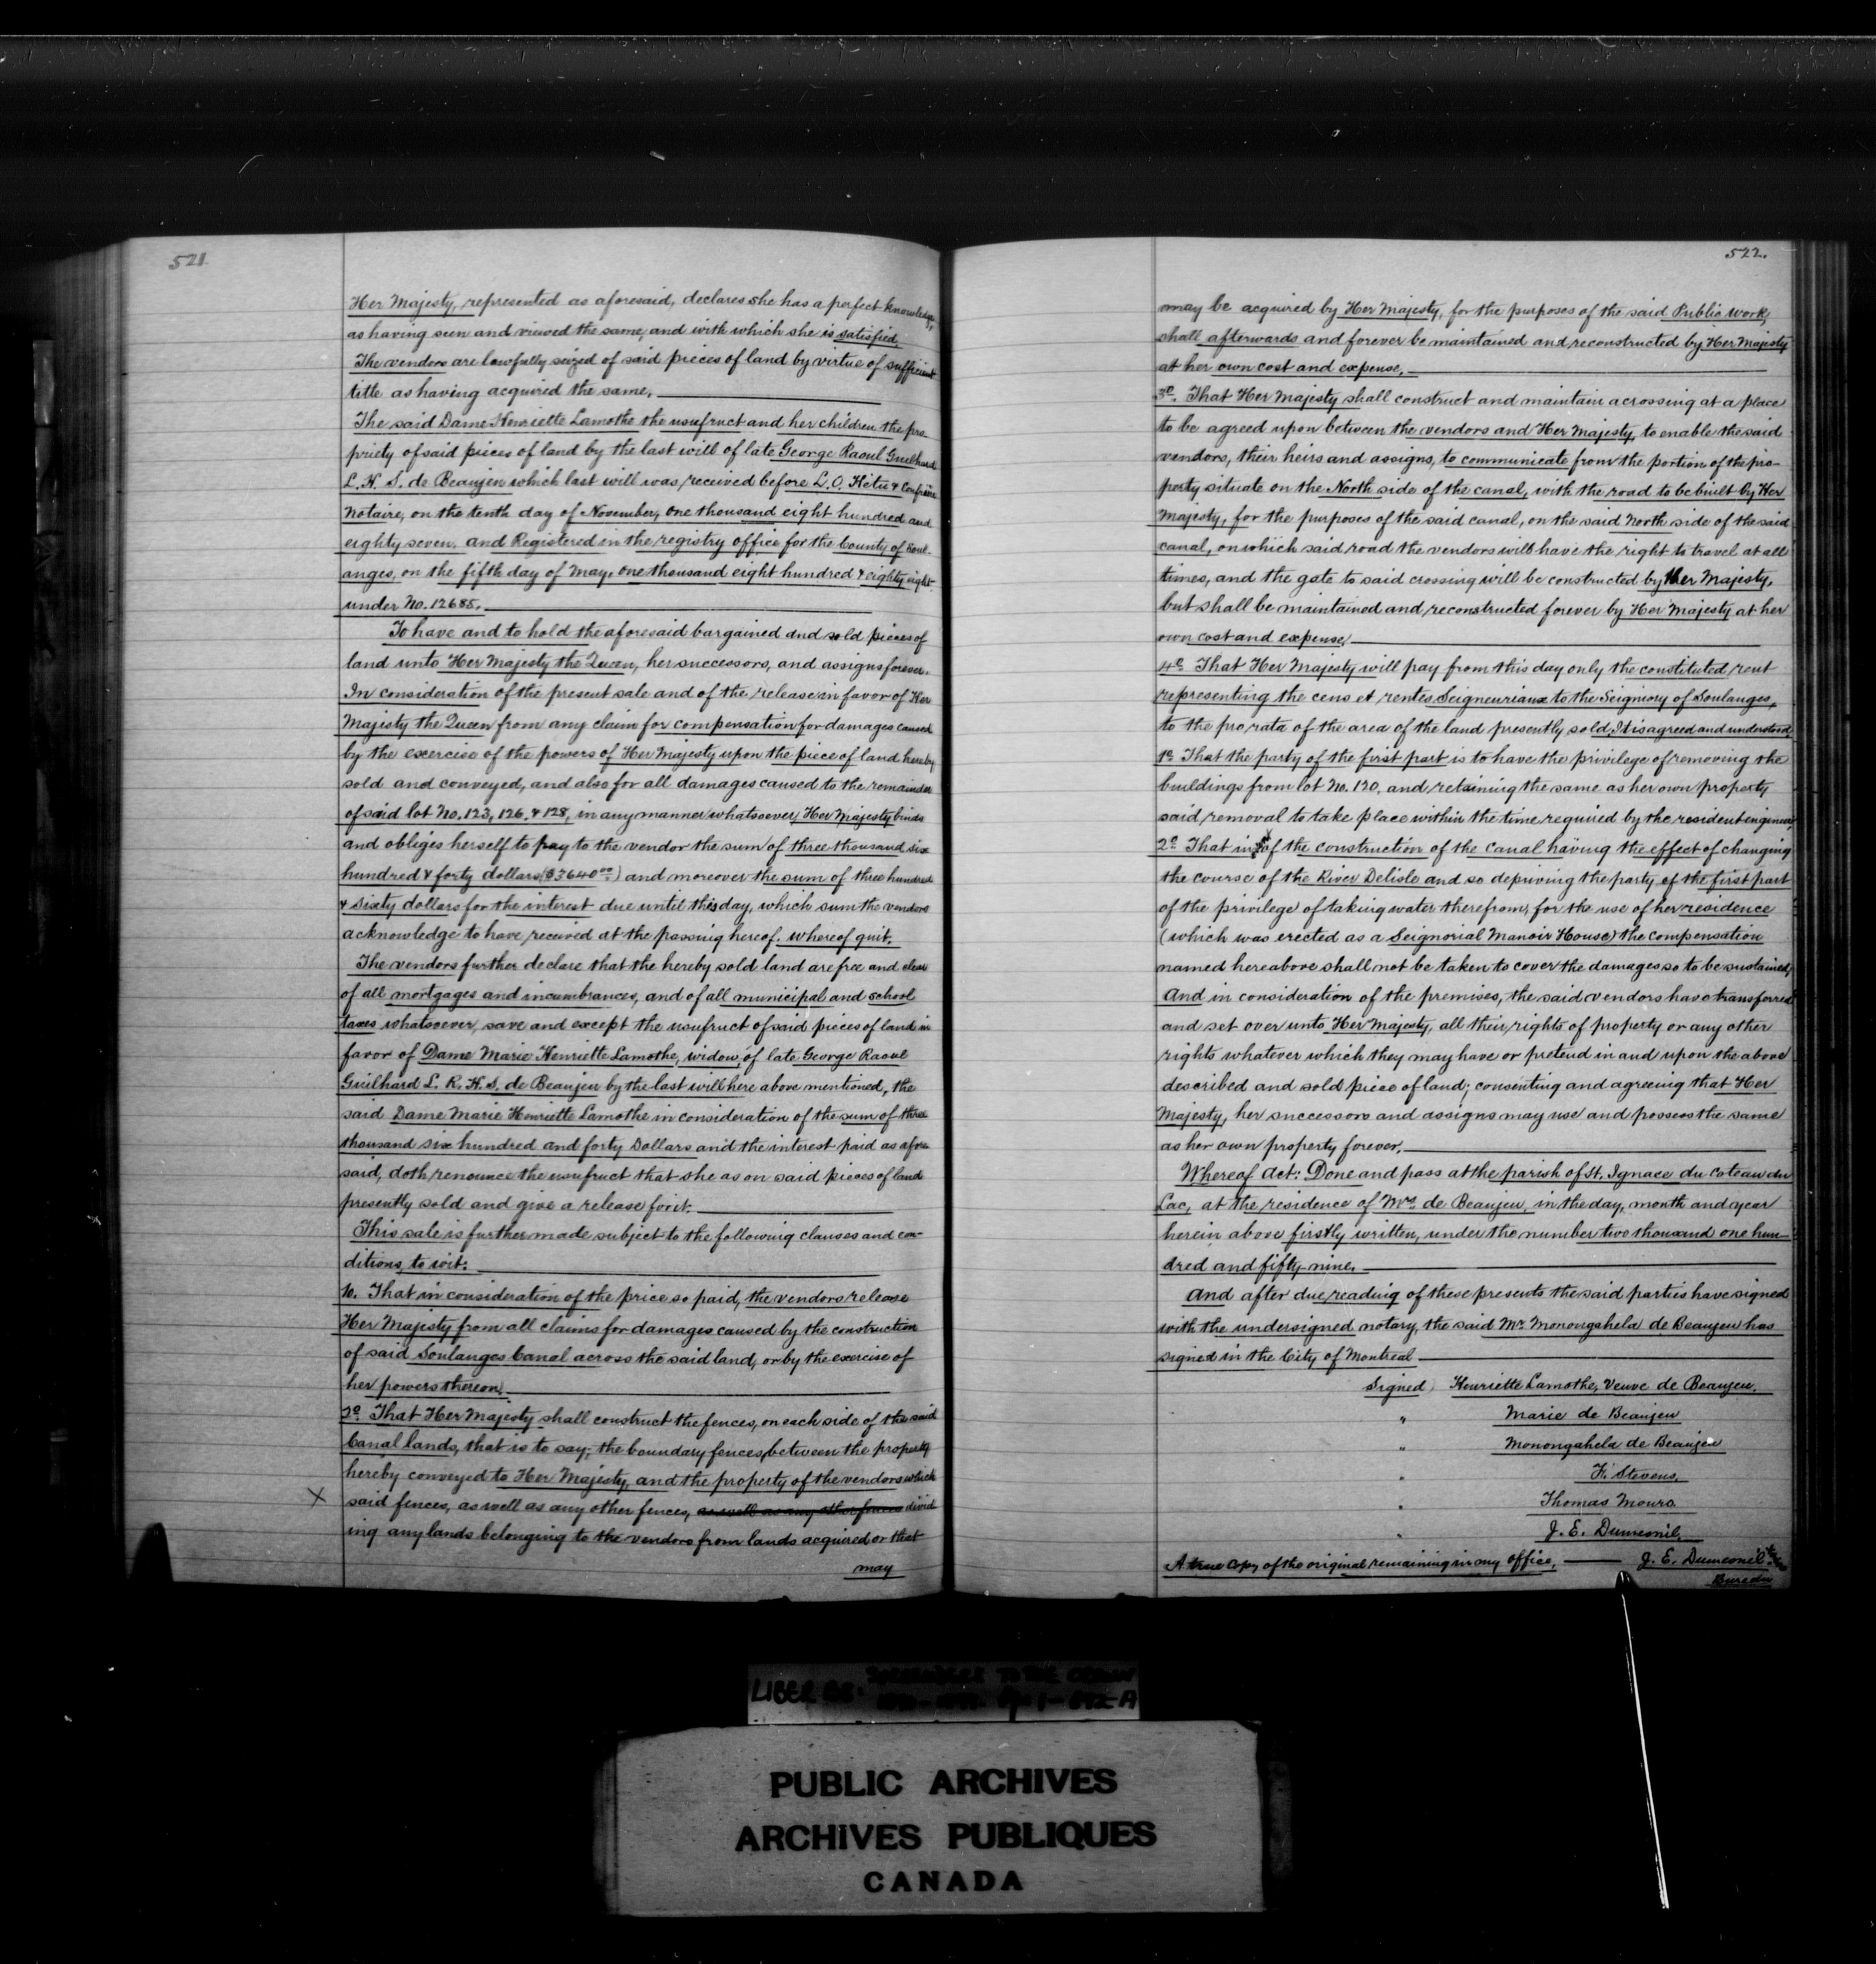 521
Her Majesty, represented as aforesaid, declares she has a perfect knowledge,
as having seen and viewed the same, and with which she is satisfied.
The vendors are lawfully seized of said pieces of land by virtue of sufficient
title as having acquired the same.
The said Dame Henriette Lamothe the usufruct and her children the pro-
priety of said pieces of land by the last will of late George Raoul Guilhard
L. H. S. de Beaujeu which last will was received before L. O. Hétu & Confrère
Notaire, on the tenth day of November, one thousand eight hundred and
eighty seven. and Registered in the registry office for the County of Soul-
anges, on the fifth day of May, one thousand eight hundred & eighty eight.
under No. 12685.
To have and to hold the aforesaid bargained and sold pieces of
land unto Her Majesty the Queen, her successors, and assigns forever.
In consideration of the present sale and of the release in favor of Her
Majesty the Queen from any claim for compensation for damages caused
by the exercise of the powers of Her Majesty upon the piece of land hereby
sold and conveyed, and also for all damages caused to the remainder
of said lot No. 123, 126. & 128, in any manner whatsoever, Her Majesty binds
and obliges herself to pay to the vendor the sum of three thousand six
hundred & forty dollars ($3640.00) and moreover the sum of three hundred
& sixty dollars for the interest due until this day, which sum the vendors
acknowledge to have received at the passing hereof. whereof quit.
The vendors further declare that the hereby sold land are free and clear
of all mortgages and incumbrances, and of all municipal and school
taxes whatsoever, save and except the usufruct of said pieces of land in
favor of Dame Marie Henriette Lamothe, widow, of late George Raoul
Guilhard L. R. H. S. de Beaujeu by the last will here above mentioned, the
said Dame Marie Henriette Lamothe in consideration of the sum of three
thousand six hundred and forty Dollars and the interest paid as afore
said, doth renounce the usufruct that she as on said pieces of land
presently sold and give a release for it.
This sale is further made subject to the following clauses and con-
ditions, to wit:
1o. That in consideration of the price so paid, the vendors release
Her Majesty from all claims for damages caused by the construction
of said Soulanges Canal across the said land, or by the exercise of
her powers thereon.
2o. That Her Majesty shall construct the fences, on each side of the said
Canal lands, that is to say; the boundary fences, between the property
hereby conveyed to Her Majesty, and the property of the vendors which
X said fences, as well as any other fences, as well as any other fences divid
ing any lands belonging to the vendors from lands acquired or that
may
522.
may be acquired by Her Majesty, for the purposes of the said Public Work,
shall afterwards and forever be maintained and reconstructed by Her Majesty
at her own cost and expense.
3o. That Her Majesty shall construct and maintain a crossing at a place
to be agreed upon between the vendors and Her Majesty, to enable the said
vendors, their heirs and assigns, to communicate from the portion of the pro-
perty situate on the North side of the canal, with the road to be built by Her
Majesty, for the purposes of the said canal, on the said North side of the said
canal, on which said road the vendors will have the right to travel at all
times, and the gate to said crossing will be constructed by Her Majesty,
but shall be maintained and reconstructed forever by Her Majesty at her
own cost and expense.
4o. That Her Majesty will pay from this day only the constituted rent
representing the cens et rentes Seigneuriaux to the Seigniory of Soulanges,
to the pro rata of the area of the land presently sold. It is agreed and understood
1o. That the party of the first part is to have the privilege of removing the
buildings from lot No. 120. and retaining the same as her own property
said removal to take place within the time required by the resident engineer,
2o. That in of the construction of the canal having the effect of changing
the course of the River Delisle and so depriving the party of the first part
of the privilege of taking water therefrom, for the use of her residence
(which was erected as a Seignorial Manoir House) the compensation
named hereabove shall not be taken to cover the damages so to be sustained,
And in consideration of the premises, the said vendors have transferred
and set over unto Her Majesty, all their rights of property or any other
rights whatever which they may have or pretend in and upon the above
described and sold piece of land; consenting and agreeing that Her
Majesty, her successors and assigns may use and possess the same
as her own property forever.
Whereof Act: Done and pass at the parish of St. Ignace du Coteau du
Lac, at the residence of Mrs. de Beaujeu, in the day, month and year
herein above firstly written, under the number two thousand one hun-
dred and fifty-nine.
And after due reading of these presents the said parties have signed
with the undersigned notary, the said Mr. Monongahela de Beaujeu has
signed in the City of Montreal
Signed) Henriette Lamothe, Veuve de Beaujeu.
" Marie de Beaujeu
" Monongahela de Beaujeu
" F. Stevens.
" Thomas Monro
" J. E. Dumesnil.
A true copy of the original remaining in my office, J. E. Dumesnil
LIBER
SURRENDERS TO THE CROWN
PUBLIC ARCHIVES
ARCHIVES PUBLIQUES
CANADA